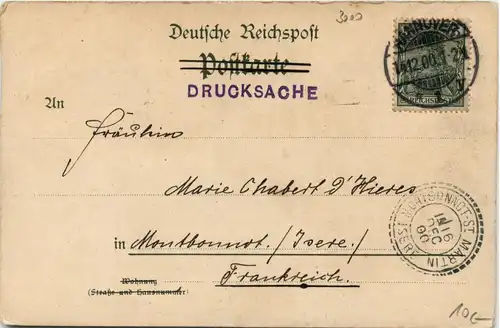 3000
Deutsche Reichspost
Postkarte
DRUCKSACHE
HANNOVER
12.00.
REICHSPOST
An
Fräulein
Marie Chabert d'Hieres
in Montbonnot. /Isere/
Frankreich.
Wohnung
(Straße und Hausnummer)
MONTBONNOT-ST MARTIN
16
DEC
00
ISERE
10€